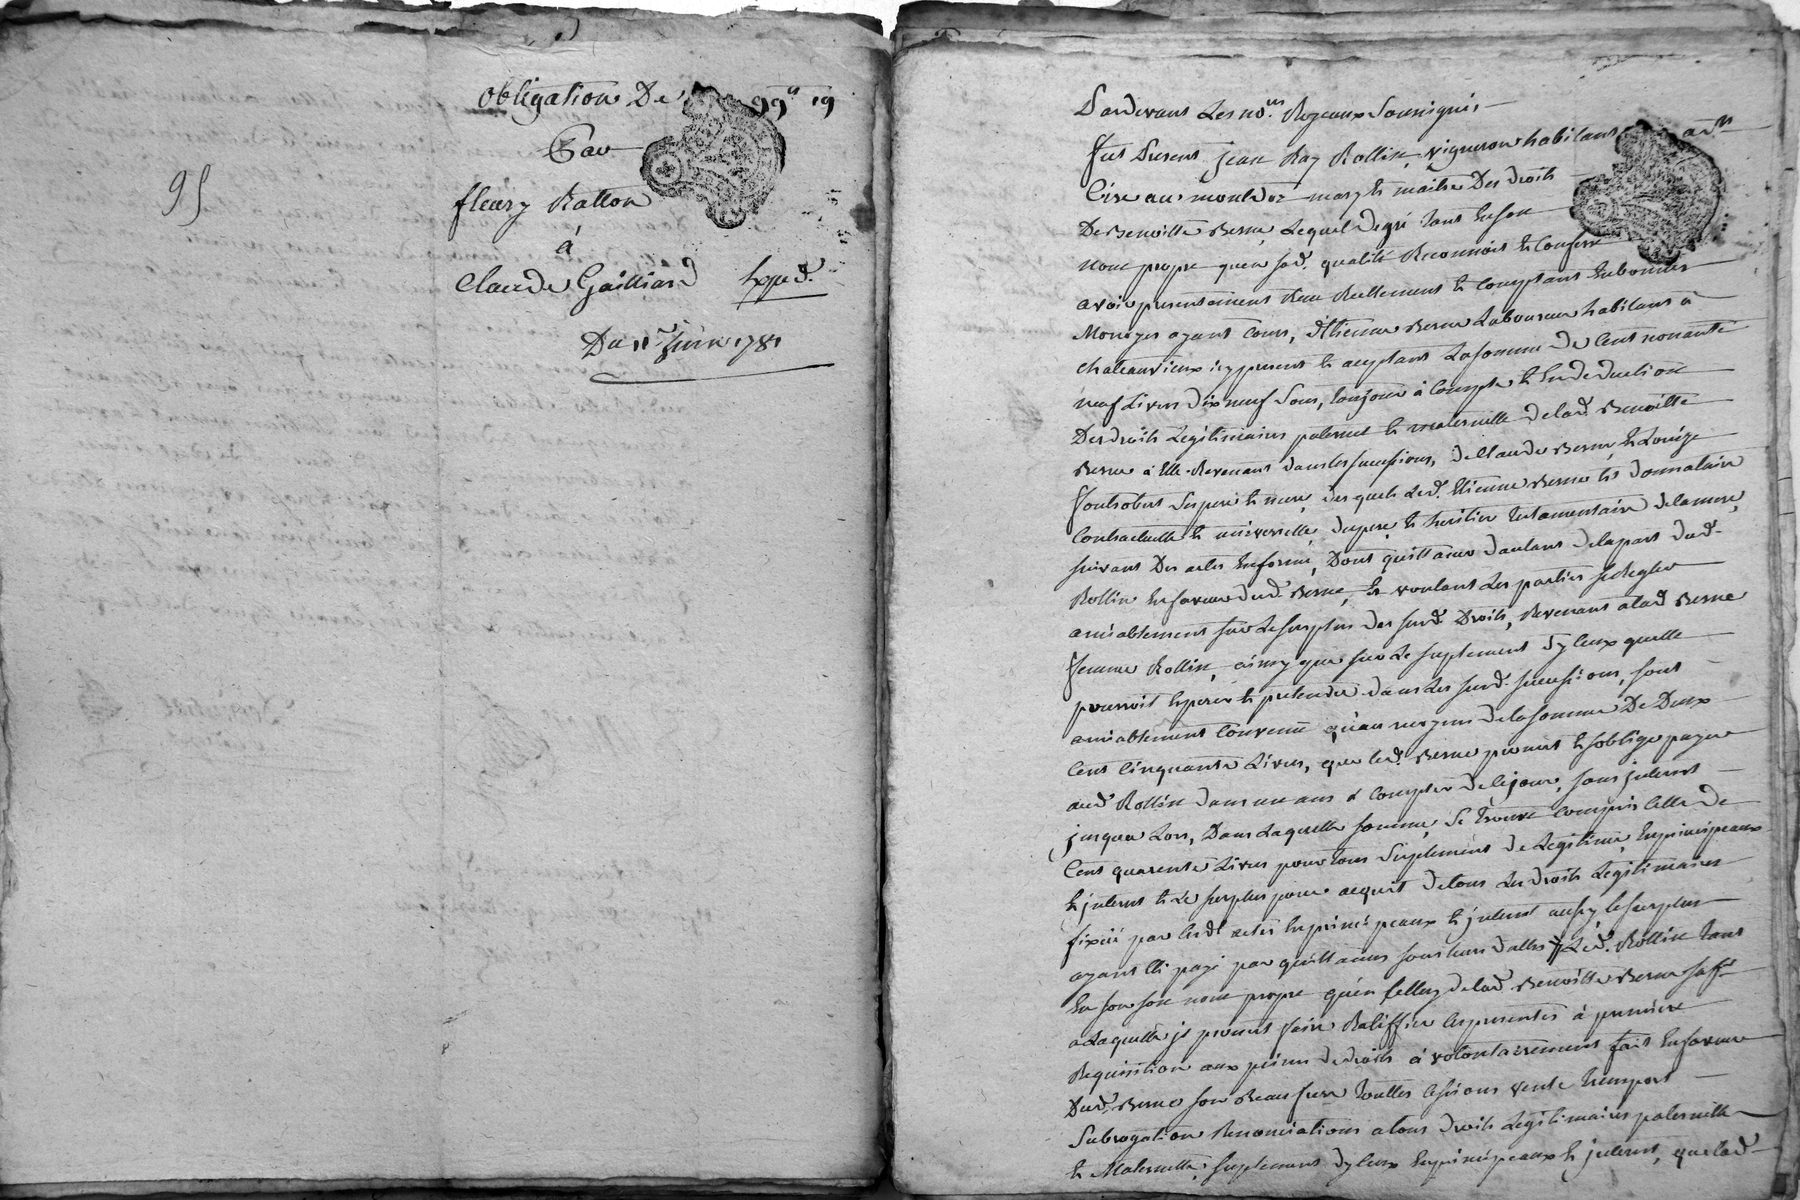 Obligation De 99ᵗᵗ 19
Par
fleury Ratton
à
Claude Gailliard Exped.
Du 11 Juin 1781
95
Pardevant Les no.res Royaux Soussignés
fut Present jean Ray Rollin, vigneron habitant
Cize au montdor mary et maitre Des droits
De Benoitte Berne, Lequel De gré tant En son
nom propre qu'en sad. qualité Reconnoit et Confesse
avoir presentement Reçu Reellement et comptant En bonnes
Monoyes ayant Cours, d'Etienne Berne Laboureur habitant à
chateauvieux icy present et acceptant La somme De Cent nonante
neuf Livres dix neuf Sous, toujour à Compte et En deduction
Des droits Legitimaires paternel et maternelle De lad. Benoitte
Berne à Elle Revenant dans les successions, de Claude Berne et Louise
Ses pere et mere, des quels Led. Etienne Berne Est donnataire
Contractuelle et universelle du pere, et heritier testamentaire de la mere,
suivant Des actes En forme, Dont quittance d'autant de la part dud.
Rollin En faveur dud. Berne, Et voulant Les parties se Regler
amiablement sur Le surplus des susd. Droits, Revenant a lad Berne
femme Rollin, ainsy que sur Le suplement d'yceux quelle
pourroit Esperer et pretendre dans Les susd. successions, sont
amiablement Convenu qu'au moyens de la somme De Deux
Cent Cinquante Livres, que led. Berne promet et s'oblige payer
aud Rollin dans un ans à compter de ce jour, sans interest
jusqua Lors, Dans Laquelle somme, Se trouve Compris Celle De
Cent quarente Livres pour tous Suplement de Legitime, En principaux
et interest et Le surplus pour acquit de tous Les droits Legitimaires
fixéé par lesd actes En principaux et interest aussy, le surplus
ayant Eté payé par quittances Led. Rollin tant
En son son nom propre qu'en Celluy de lad. Benoitte Berne sa ff.e
a Laquelle il promet faire Ratiffier Ces presentes à premiere
Requisition aux peines de droits à volontairement fait En faveur
Dud. Berne son Beau frere touttes Cessions vente transport
Subrogation Renonciations a tous droits Legitimaires paternelle
et Maternelle, suplement d'yceux En principeaux et interest, que lad